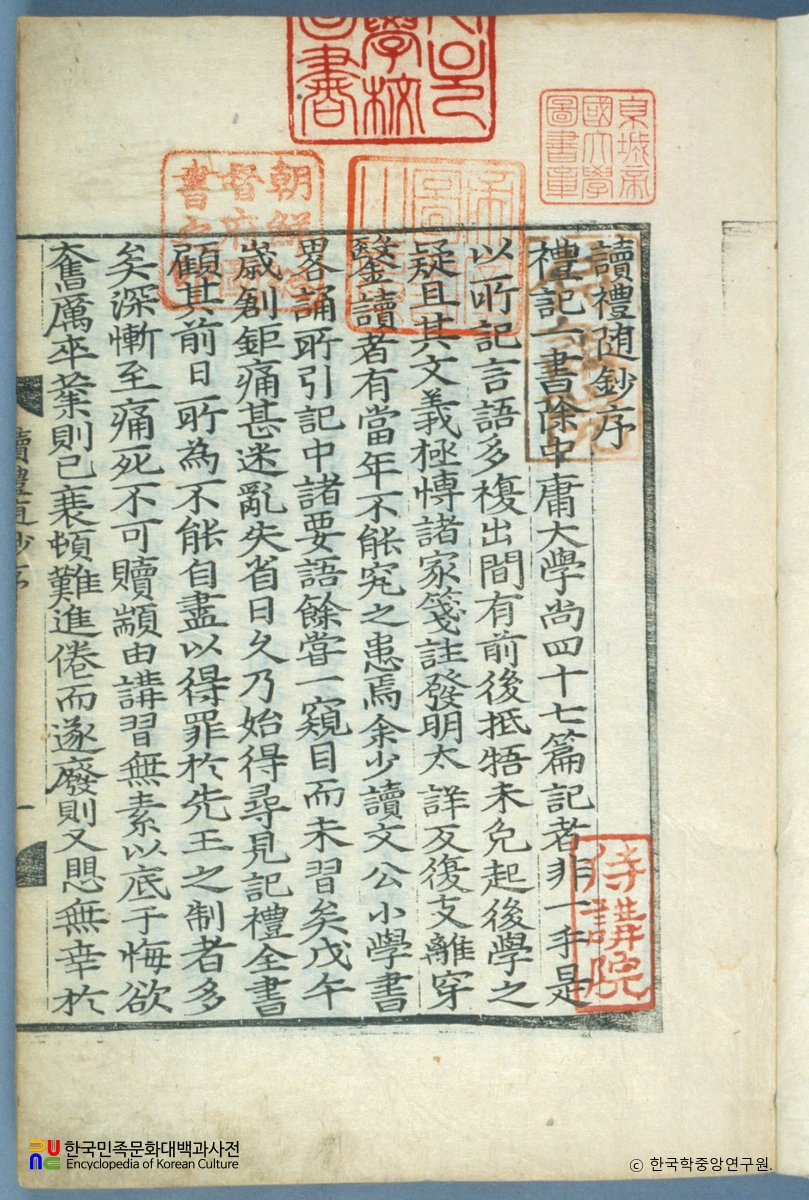 讀禮隨鈔序
禮記一書除中庸大學尚四十七篇記者非一手是
以所記言語多複出間有前後抵牾未免起後學之
疑且其文義極慱諸家箋註發明太詳反復支離穿
鑿讀者有當年不能究之患焉余少讀文公小學書
畧誦所引記中諸要語餘嘗一窺目而未習矣戊午
歲創鉅痛甚迷亂失省日久乃始得尋見記禮全書
顧其前日所為不能自盡以得罪於先王之制者多
矣深慚至痛死不可贖顓由講習無素以底于悔欲
奮厲卒業則已衰頓難進倦而遂廢則又思無幸於
讀禮隨鈔序
一
東城帝
國大學
圖書章
朝鮮
督府圖
書
學校
書
侍講院
한국민족문화대백과사전
Encyclopedia of Korean Culture
© 한국학중앙연구원.